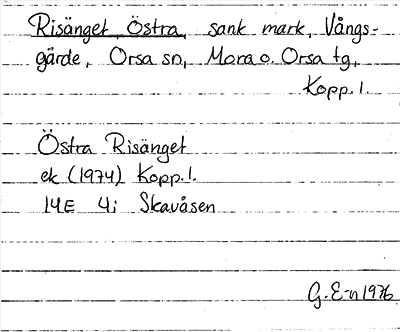 Risänget, Östra, sank mark, Vångs-
gärde, Orsa sn, Mora o. Orsa tg,
Kopp. l.
Östra Risänget
ek (1974) Kopp. l.
14E 4i Skavåsen
G. E-n 1976